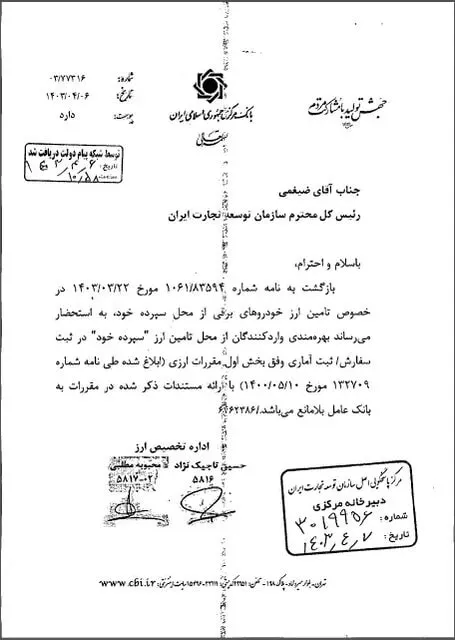 جهش تولید با مشارکت مردم
بانک مرکزی جمهوری اسلامی ایران
بسمه تعالی
شماره: ۰۳/۷۷۳۱۶
تاریخ: ۱۴۰۳/۰۴/۰۶
پیوست: دارد
توسط شبکه پیام دولت دریافت شد
تاریخ:
ساعت:
جناب آقای ضیغمی
رئیس کل محترم سازمان توسعه تجارت ایران
باسلام و احترام،
بازگشت به نامه شماره ۱۰۶۱/۸۳۵۹۴ مورخ ۱۴۰۳/۰۳/۲۲ در
خصوص تامین ارز خودروهای برقی از محل سپرده خود، به استحضار
می‌رساند بهره‌مندی واردکنندگان از محل تامین ارز "سپرده خود" در ثبت
سفارش/ ثبت آماری وفق بخش اول مقررات ارزی (ابلاغ شده طی نامه شماره
۱۳۲۷۰۹ مورخ ۱۴۰۰/۰۵/۱۰) با ارائه مستندات ذکر شده در مقررات به
بانک عامل بلامانع می‌باشد./۶۰۶۲۳۸۶
اداره تخصیص ارز
حسین تاجیک نژاد
۵۸۱۶
محبوبه مطلبی
۵۸۱۷-۰۲
مرکز پاسخگویی اصل سازمان توسعه تجارت ایران
دبیرخانه مرکزی
شماره: ۳۰۱۹۹۵۶
تاریخ: ۱۴۰۳/۴/۷
www.cbi.ir